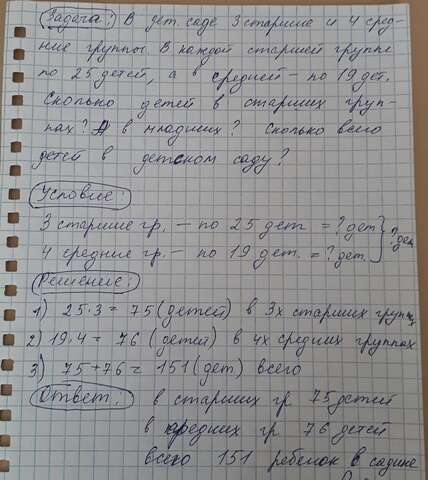 Задача: В дет. саде 3 старших и 4 сред-
ние группы. В каждой старшей группе
по 25 детей, а в средней – по 19 дет.
Сколько детей в старших груп-
пах? А в младших? Сколько всего
детей в детском саду?
Условие:
3 старшие гр. – по 25 дет = ? дет } ? дет
4 средние гр. – по 19 дет. = ? дет.
Решение:
1) 25·3 = 75 (детей) в 3х старших групп
2) 19·4 = 76 (детей) в 4х средних группах
3) 75+76 = 151 (дет) всего
Ответ: в старших гр 75 детей
в средних гр 76 детей
всего 151 ребёнок в садике